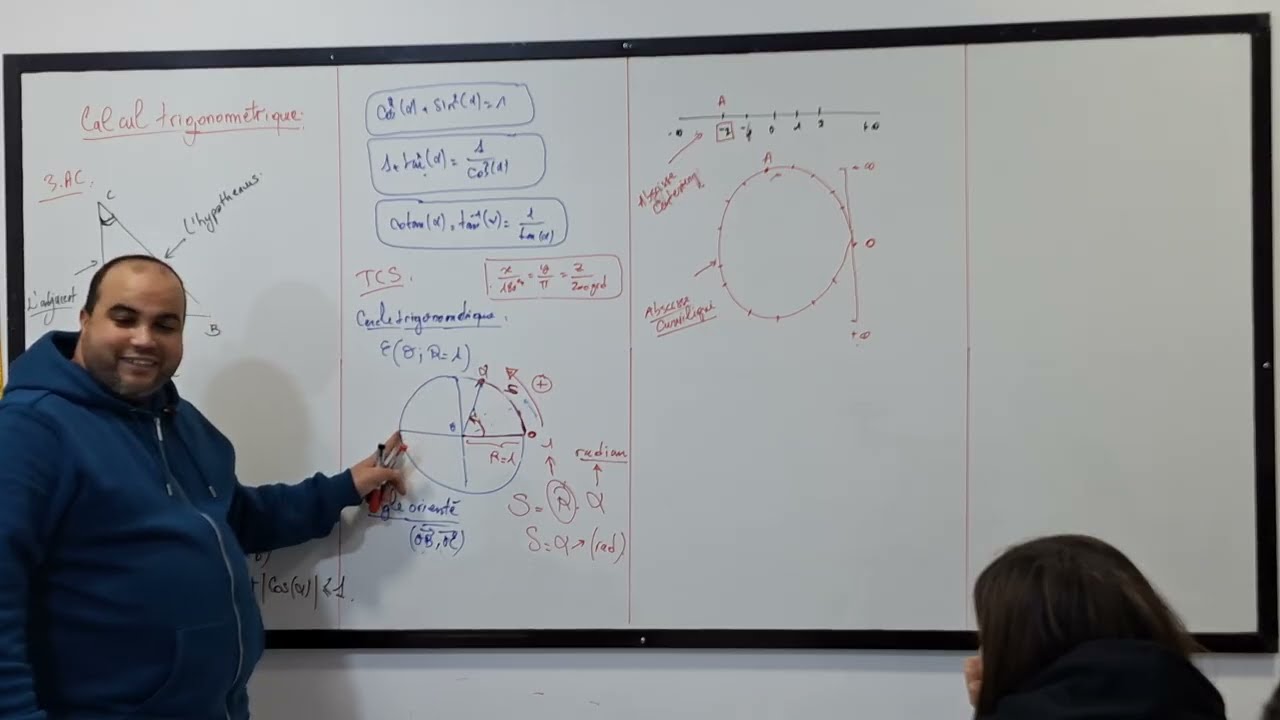 Calcul trigonométrique.
3.AC.
C
L'hypothenus.
L'adjacent
B
|Cos(α)| ≤ 1.
Cos²(α) + Sin²(α) = 1
1 + tan²(α) = 1/Cos²(α)
Cotan(α) = tan⁻¹(α) = 1/tan(α)
TCS.
x/180° = y/π = z/200grd
Cercle trigonométrique.
C(O; R=1)
α
S
+
O
R=1
1
radian
S = R . α
Angle orienté
S = α → (rad)
A
-∞ -2 -1 0 1 2 +∞
Abscisse
A
-∞
0
Abscisse
Curviligne
+∞